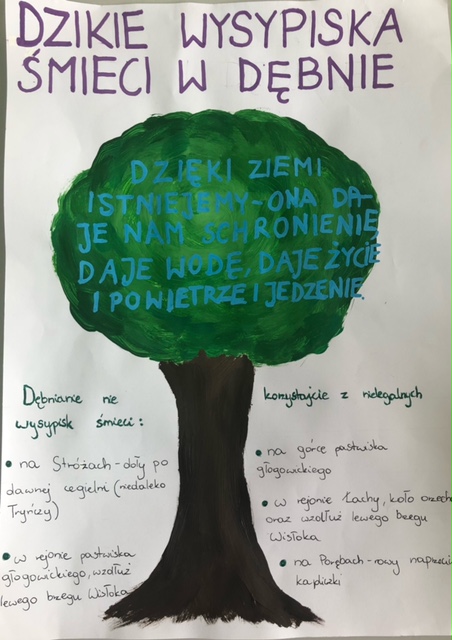 DZIKIE WYSYPISKA
ŚMIECI W DĘBNIE
DZIĘKI ZIEMI
ISTNIEJEMY-ONA DA-
JE NAM SCHRONIENIE,
DAJE WODĘ, DAJE ŻYCIE
I POWIETRZE I JEDZENIE.
Dębnianie nie korzystajcie z nielegalnych
wysypisk śmieci:
• na Stróżach - doły po
dawnej cegielni (niedaleko
Tryńczy)
• w rejonie pastwiska
głogowickiego, wzdłuż
lewego brzegu Wisłoka
• na górce pastwiska
głogowickiego
• w rejonie Łachy, koło
oraz wzdłuż lewego brzegu
Wisłoka
• na Porębach - rowy
kapliczki